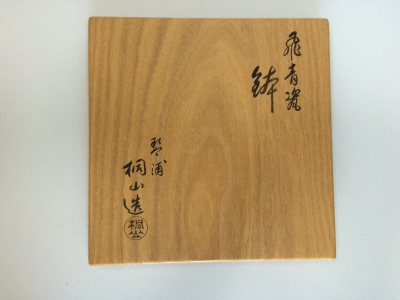 飛青瓷
鉢
琴浦
桐山造
桐山